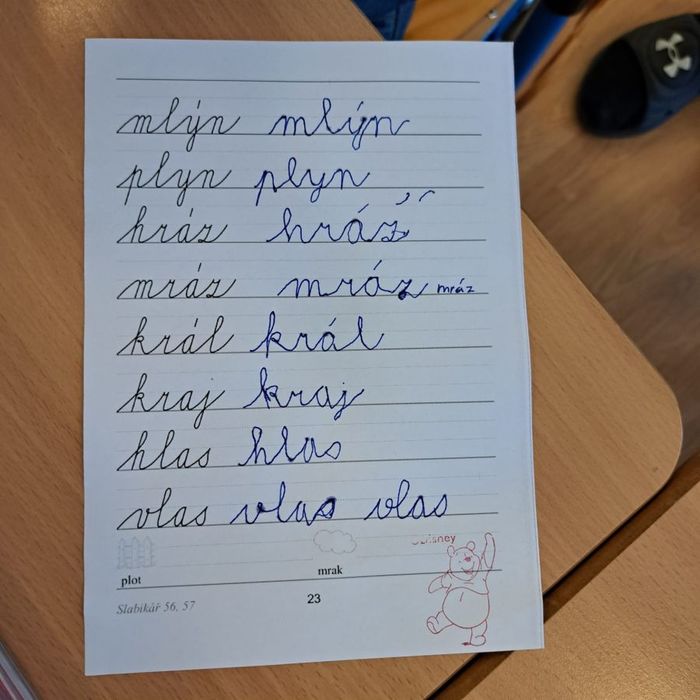 mlýn mlýn
plyn plyn
hráz hráz
mráz mráz mráz
král král
kraj kraj
hlas hlas
vlas vlas vlas
Disney
plot mrak
Slabikář 56, 57 23